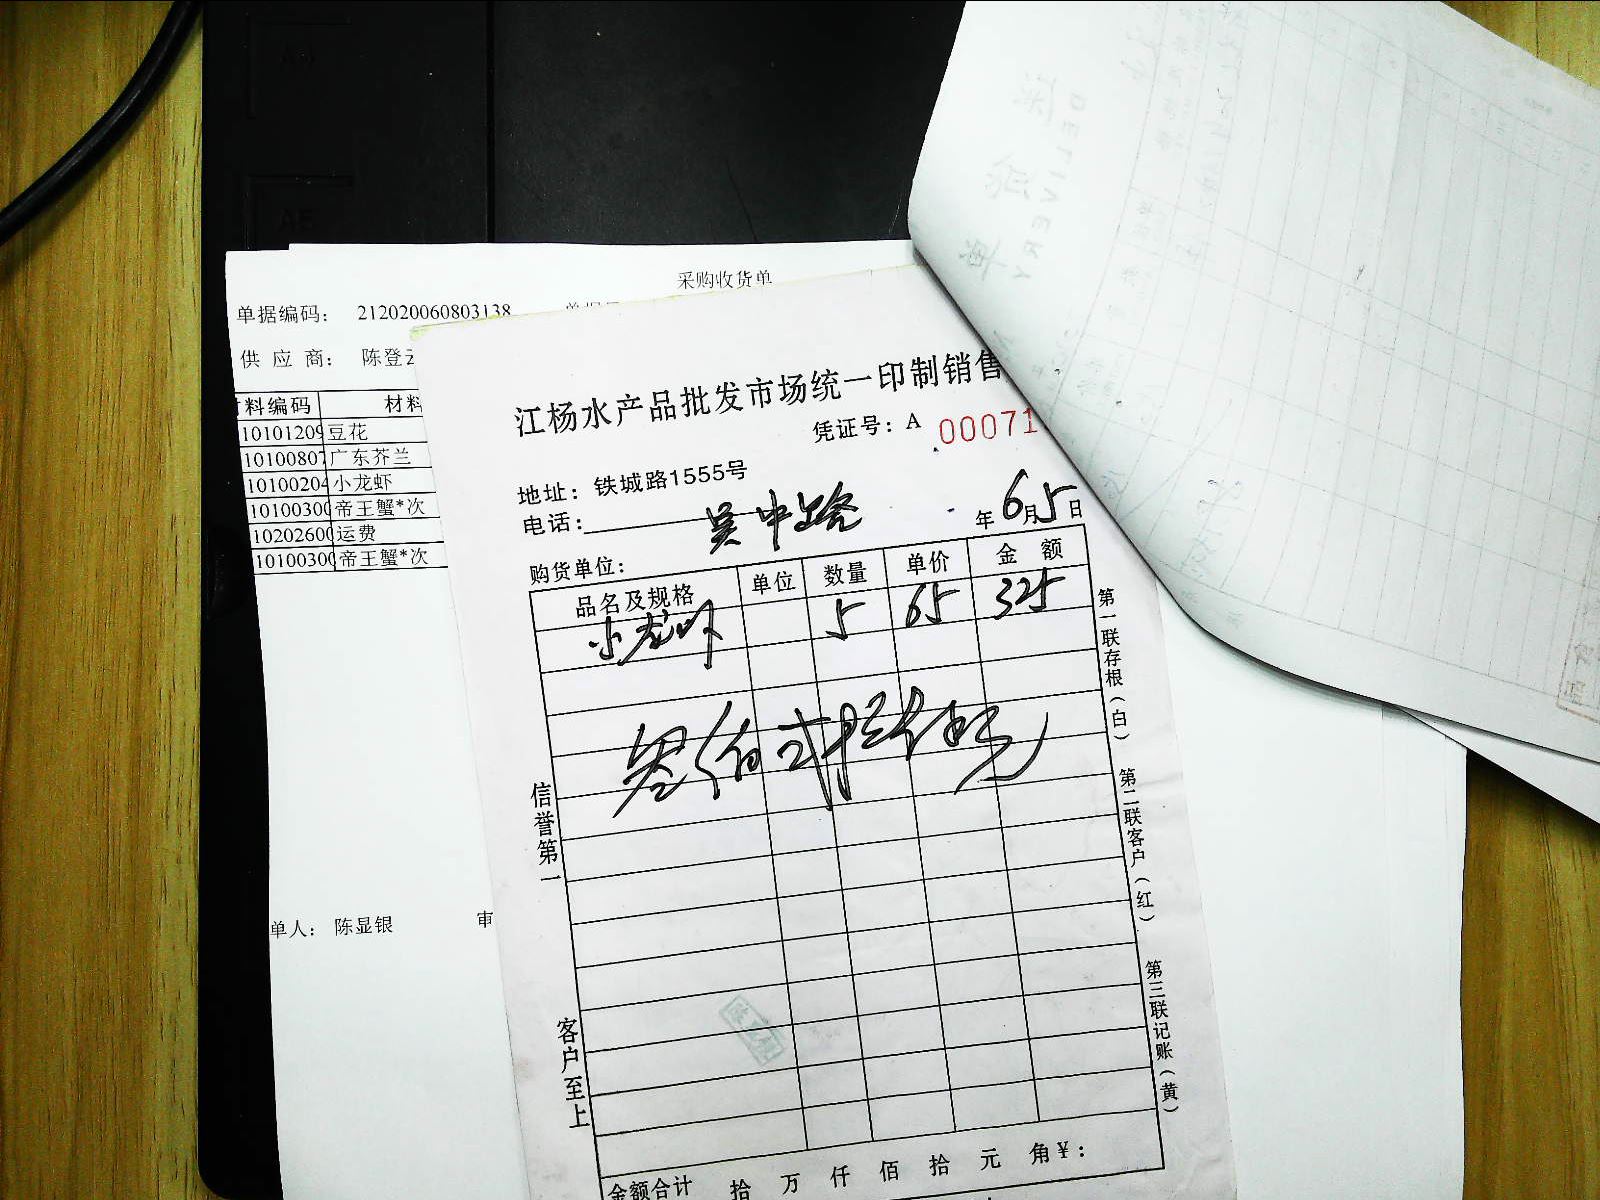 采购收货单
单据编码： 212020060803138
供 应 商： 陈登云
材料编码 材料
10101209 豆花
10100807 广东芥兰
10100204 小龙虾
10100300 帝王蟹*次
10202600 运费
10100300 帝王蟹*次
单人： 陈显银 审
江杨水产品批发市场统一印制销售
凭证号：A 00071
地址：铁城路1555号
电话：
吴中路
年 6月5日
购货单位：
品名及规格 单位 数量 单价 金 额
小龙虾 5 65 325
叁佰贰拾伍元
信誉第一
客户至上
第一联存根（白）
第二联客户（红）
第三联记账（黄）
金额合计 拾 万 仟 佰 拾 元 角￥：
DELIVERY